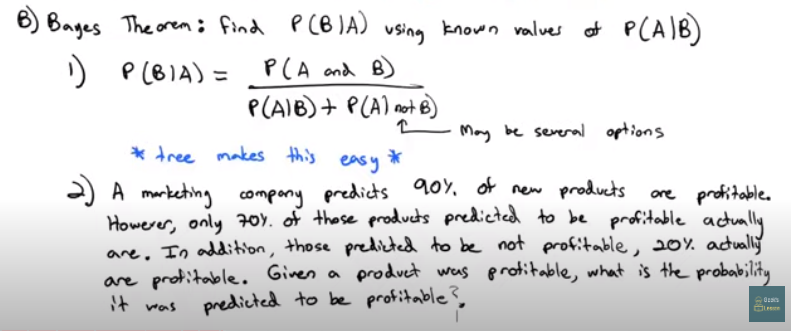 B) Bayes Theorem: find P(B|A) using known values of P(A|B)
1) P(B|A) = P(A and B)
P(A|B) + P(A| not B)
May be several options
* tree makes this easy *
2) A marketing company predicts 90% of new products are profitable.
However, only 70% of those products predicted to be profitable actually
are. In addition, those predicted to be not profitable, 20% actually
are profitable. Given a product was profitable, what is the probability
it was predicted to be profitable?